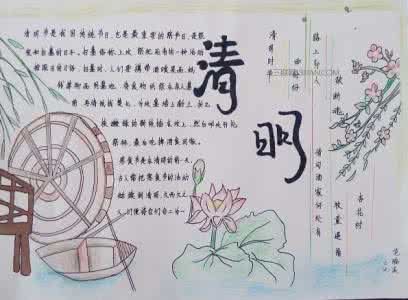 清明节是我国传统节日,也是最重要的祭节日,是祭
祖和扫墓的日子。扫墓俗称上坟,祭祀死者的一种活动
按照旧的习俗,扫墓时,人们要携带酒食果品、纸
钱等物品到墓地,将食物供祭在亲人墓
前,再将纸钱焚化,为坟墓培上新土,折几
枝嫩绿的新枝插在坟上,然后叩头行礼
祭拜,最后吃掉酒食回家。
寒食节是在清明的前一天,
古人常把寒食节的活动
延续到清明,久而久之,
人们便将它们合二为一
清明
清明时节
雨纷纷
路上行人
欲断魂
借问酒家何处有
牧童遥指
杏花村